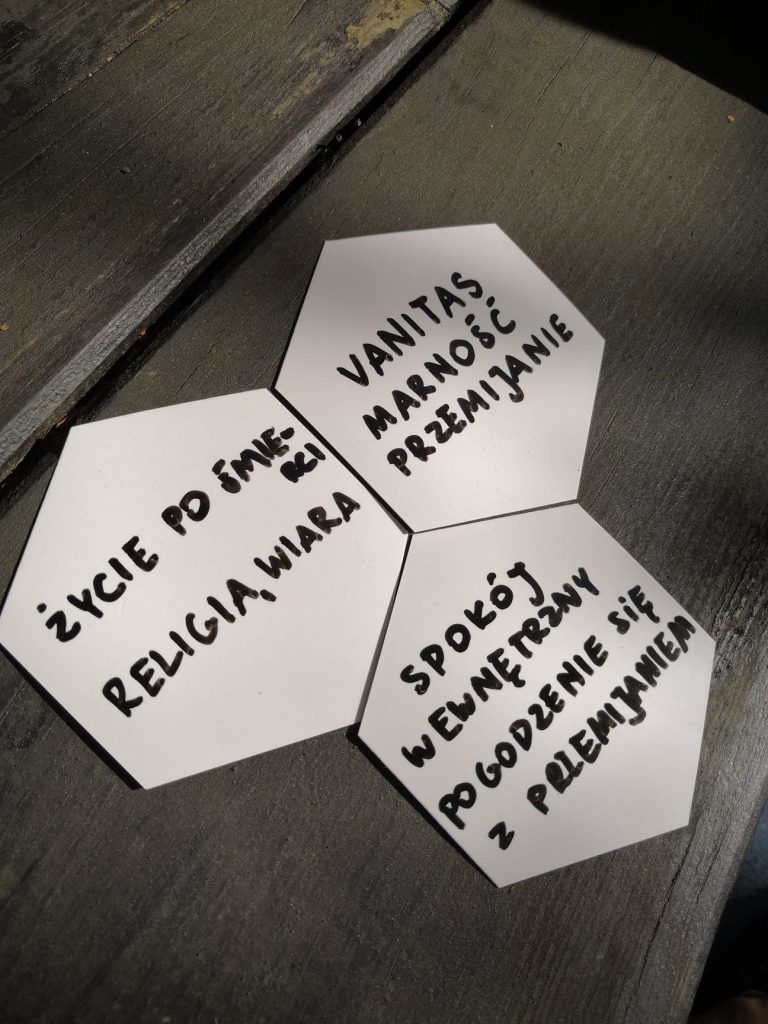 VANITAS,
MARNOŚĆ
PRZEMIJANIE
ŻYCIE PO ŚMIE-
RCI
RELIGIA, WIARA
SPOKÓJ
WEWNĘTRZNY
POGODZENIE SIĘ
Z PRZEMIJANIEM